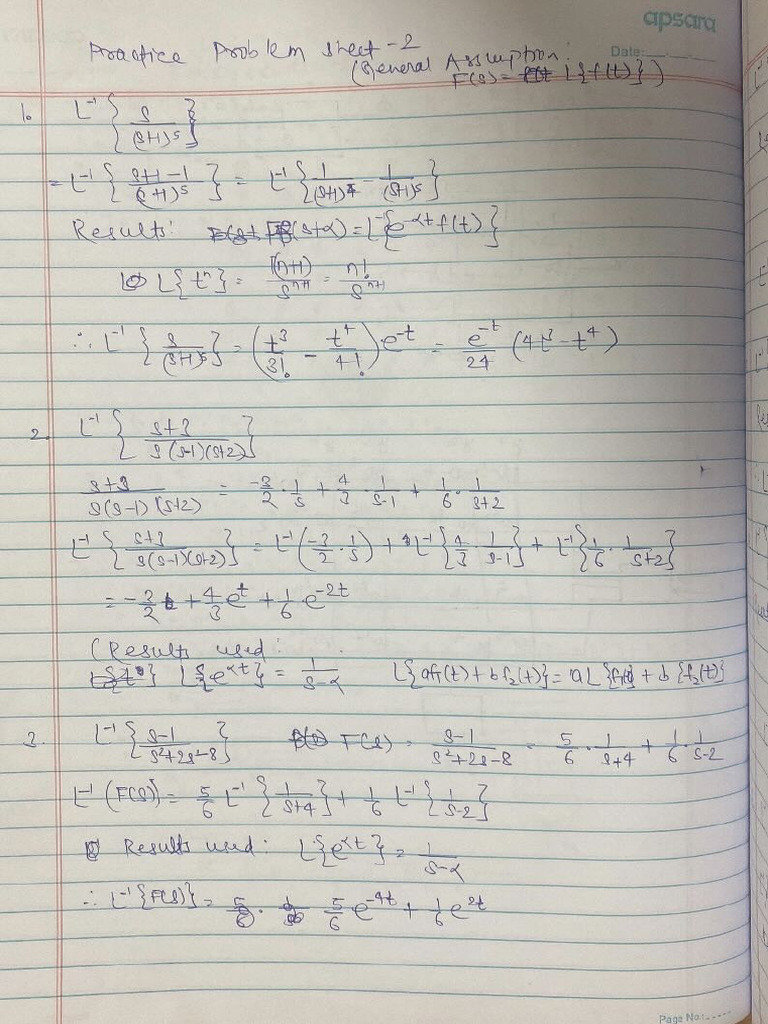 apsara
Date:
Practice Problem sheet-2
(General Assumption:
F(s) = L{f(t)})
1. L⁻¹{s/(s+1)⁵}
= L⁻¹{(s+1-1)/(s+1)⁵} = L⁻¹{1/(s+1)⁴ - 1/(s+1)⁵}
Results: F(s+α) = L{e^(-αt) f(t)}
L{tⁿ} = Γ(n+1)/s^(n+1) = n!/s^(n+1)
∴ L⁻¹{s/(s+1)⁵} = (t³/3! - t⁴/4!) e^(-t) = e^(-t)/24 (4t³ - t⁴)
2. L⁻¹{(s+3)/(s(s-1)(s+2))}
(s+3)/(s(s-1)(s+2)) = -3/2 · 1/s + 4/3 · 1/(s-1) + 1/6 · 1/(s+2)
L⁻¹{(s+3)/(s(s-1)(s+2))} = L⁻¹(-3/2 · 1/s) + L⁻¹{4/3 · 1/(s-1)} + L⁻¹{1/6 · 1/(s+2)}
= -3/2 + 4/3 e^t + 1/6 e^(-2t)
(Results used:
L{e^(αt)} = 1/(s-α) L{af₁(t) + bf₂(t)} = aL{f₁(t)} + b{f₂(t)}
3. L⁻¹{(s-1)/(s²+2s-8)} F(s) = (s-1)/(s²+2s-8) = 5/6 · 1/(s+4) + 1/6 · 1/(s-2)
L⁻¹(F(s)) = 5/6 L⁻¹{1/(s+4)} + 1/6 L⁻¹{1/(s-2)}
Results used: L{e^(αt)} = 1/(s-α)
∴ L⁻¹{F(s)} = 5/6 e^(-4t) + 1/6 e^(2t)
Page No: